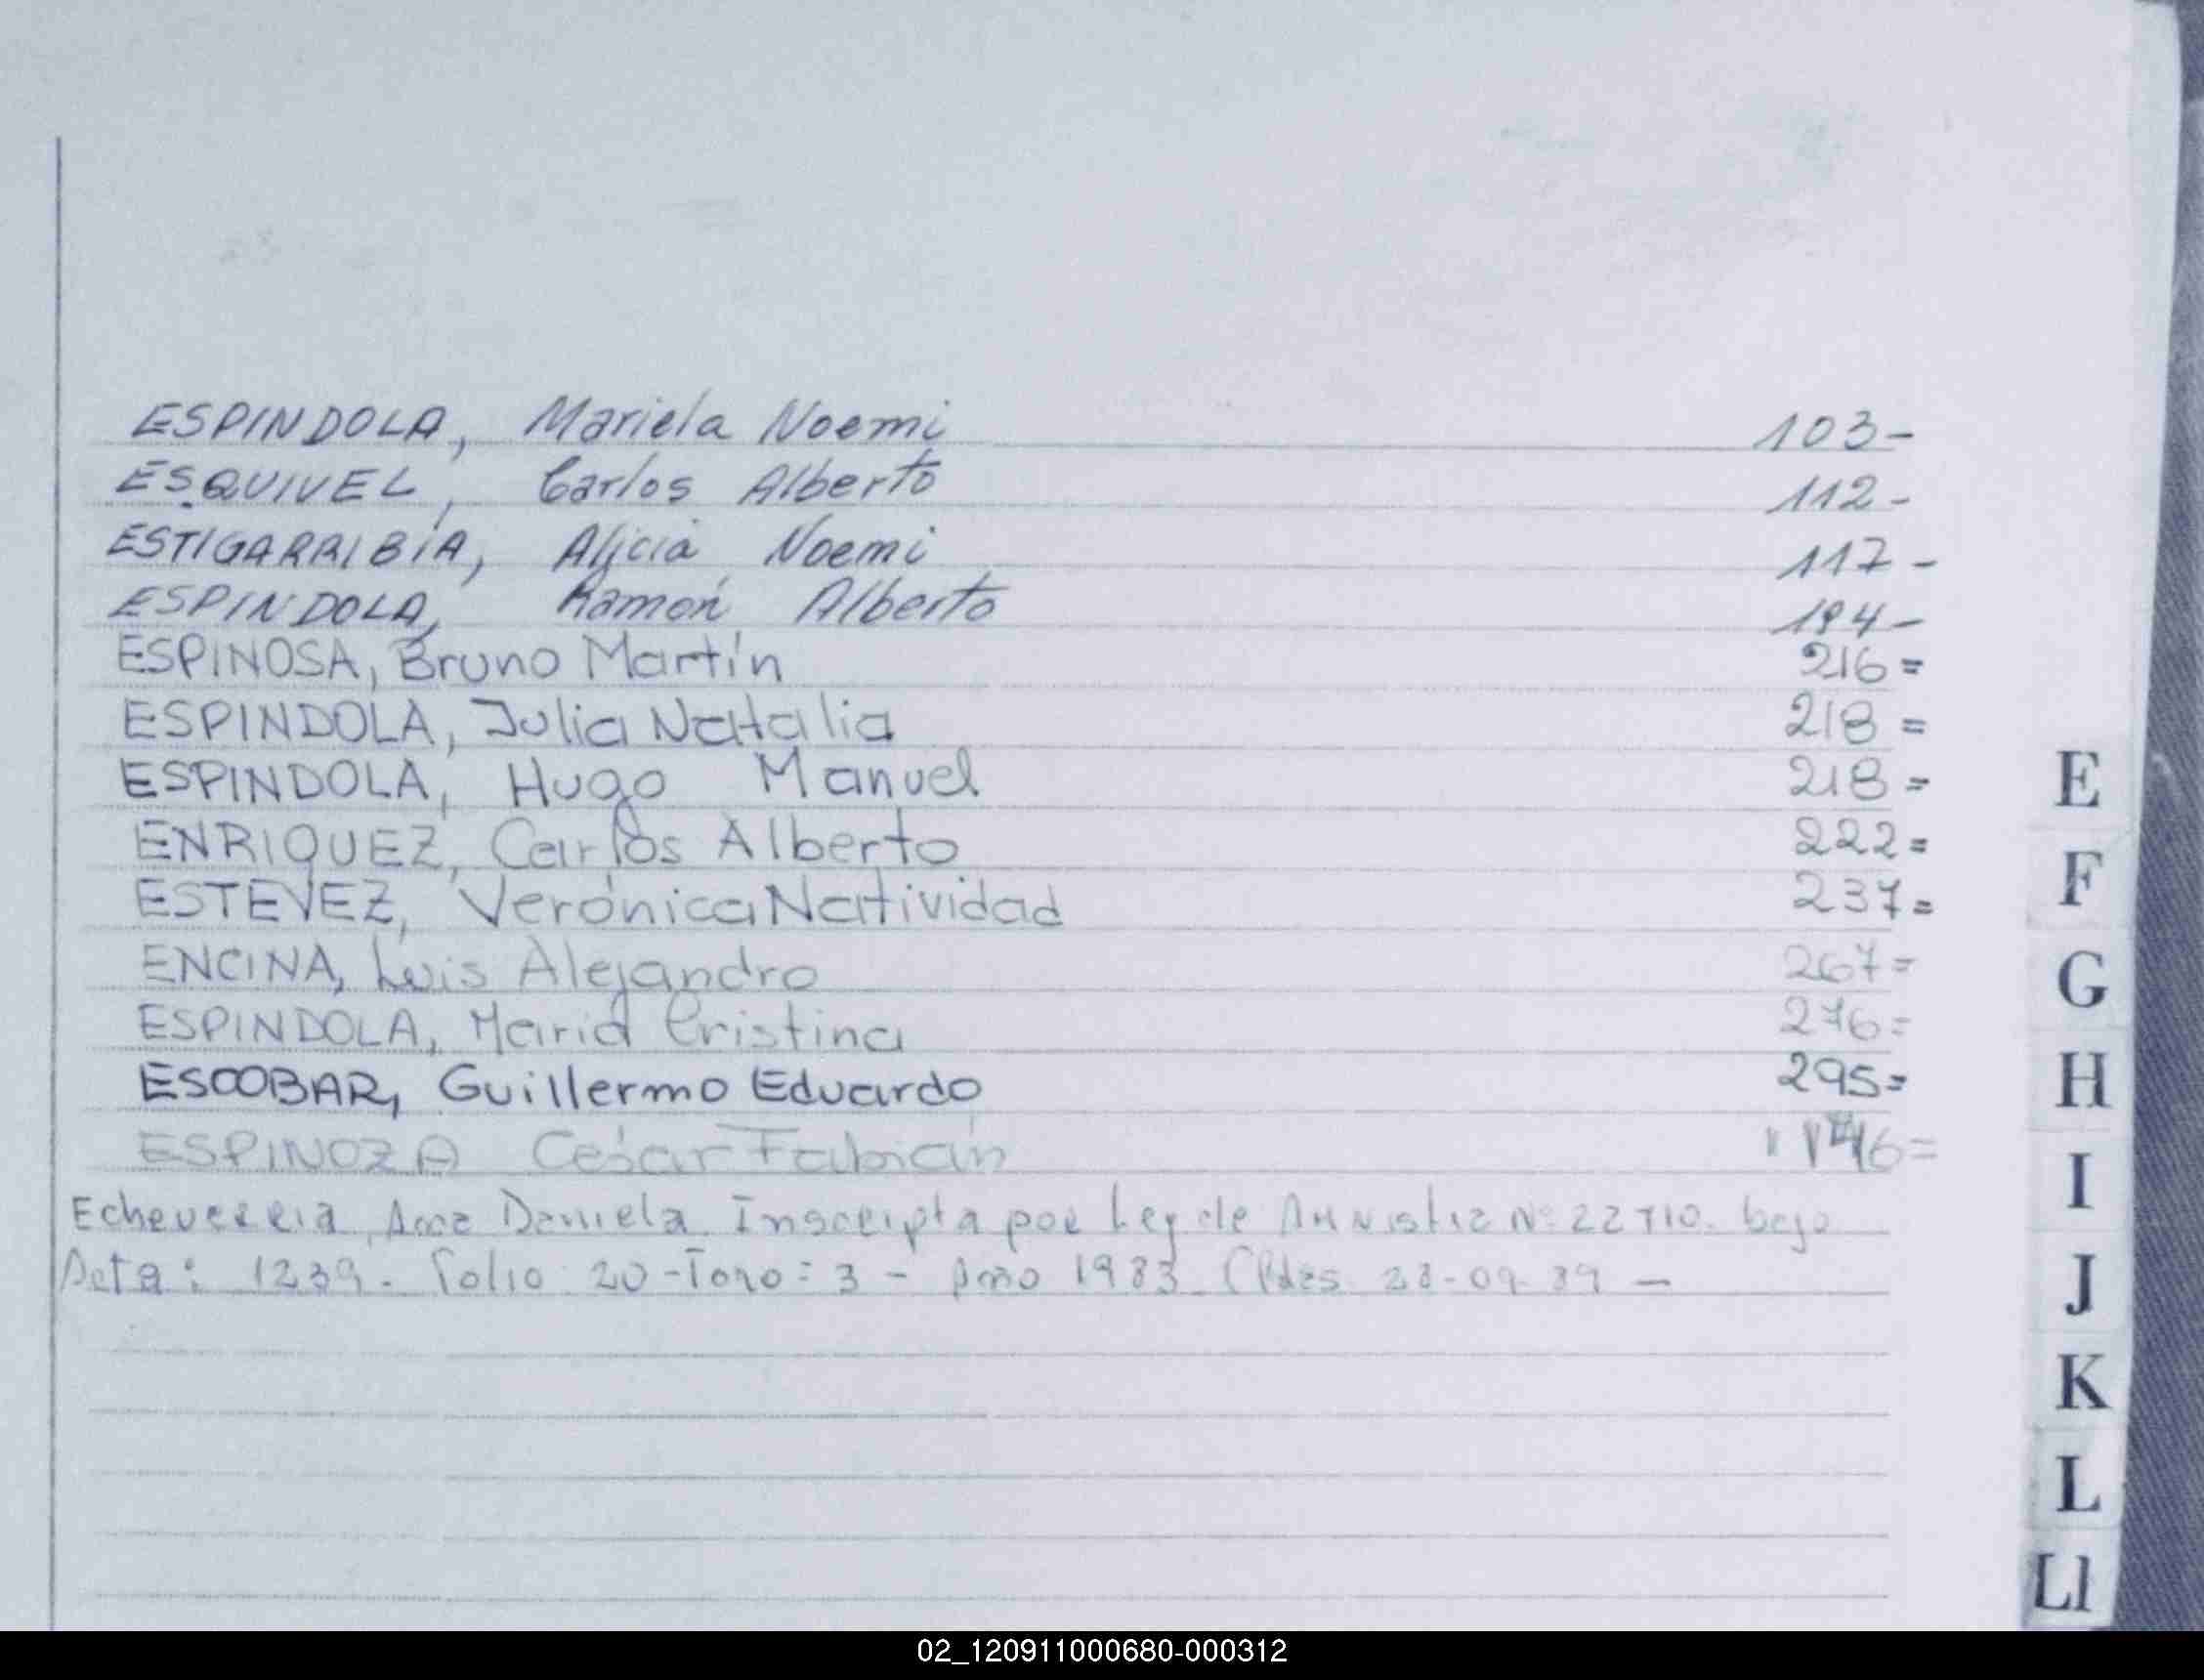 ESPINDOLA, Mariela Noemi 103-
ESQUIVEL, Carlos Alberto 112-
ESTIGARRIBIA, Alicia Noemi 117-
ESPINDOLA, Ramón Alberto 194-
ESPINOSA, Bruno Martín 216=
ESPINDOLA, Julia Natalia 218=
ESPINDOLA, Hugo Manuel 218=
ENRIQUEZ, Carlos Alberto 222=
ESTEVEZ, Verónica Natividad 237=
ENCINA, Luis Alejandro 267=
ESPINDOLA, Maria Cristina 276=
ESCOBAR, Guillermo Eduardo 295=
ESPINOZA César Fabián
Echeverria, Daniela. Inscripta por Ley de Amnistia Nº 22710. bajo
Acta: 1239. Folio 20-Tomo: 3 - Año 1983
E
F
G
H
I
J
K
L
Ll
02_120911000680-000312